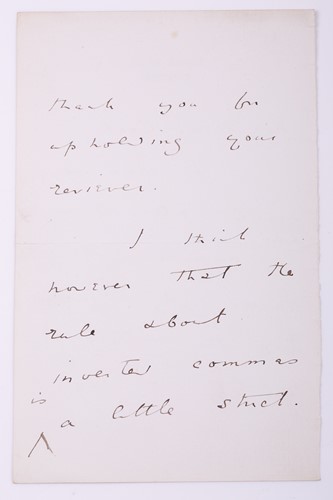 thank you for
upholding your
reviewer.
I think
however that the
rule about
inverted commas
is
a little strict.